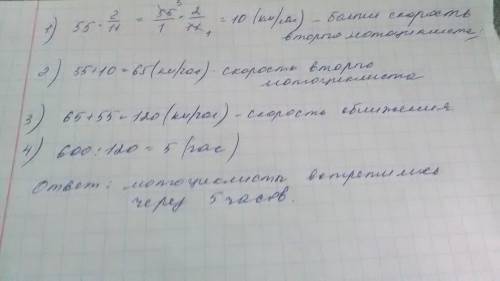 1) 55 · 2/11 = 55⁵/1 · 2/11₁ = 10 (км/час) – больше скорость
второго мотоциклиста;
2) 55+10=65(км/час) - скорость второго
мотоциклиста
3) 65+55=120(км/час) - скорость сближения
4) 600:120=5(час)
Ответ: мотоциклисты встретились
через 5 часов.